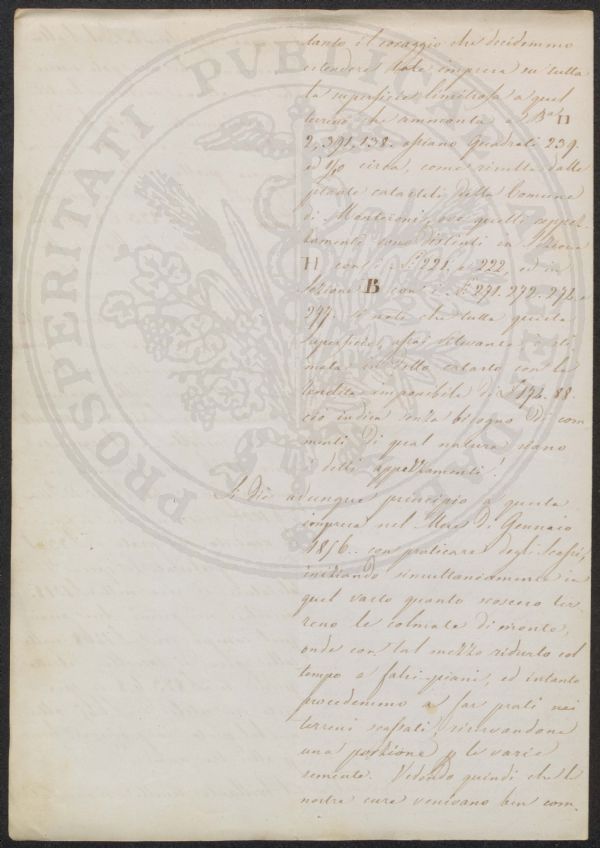 PROSPERITATI PUBLICAE
tanto il coraggio che decidemmo
estendere tale impresa su tutta
la superficie limitrofa a quel
terreno che ammonta a B.a
2,391,138. ossiano Quadrati 239.
ed 1/10 circa, come risulta dalle
piante catastali della Comune
di ove quelli appez-
zamenti sono distinti in Sezione
H con i N.i 221. e 222, ed in
Sezione B con i N.i 271. 272. 274. e
277. Si noti che tutta questa
superficie assai rilevante è sti-
mata in detto catasto con la
rendita imponibile di £ 172. 88.
ciò indica senza bisogno di com-
menti di qual natura siano
i detti appezzamenti!
Si diè adunque principio a questa
impresa nel Mese di Gennaio
1856. con praticare degli scassi,
iniziando simultaneamente in
quel vasto quanto scosceso ter-
reno le colmate di monte,
onde con tal mezzo ridurlo col
tempo a falsi-piani, ed intanto
procedemmo a far prati nei
terreni scassati, riservandone
una porzione p. le varie
semente. Vedendo quindi che le
nostre cure venivano ben com-